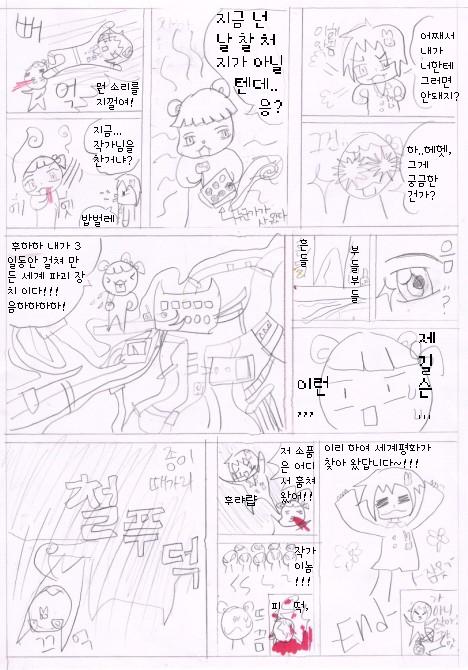 빠
억
뭔 소리를
지껄여!
지금 넌
날 찰 처
지가 아닐
텐데..
응?
어째서
내가
너한테
그러면
안돼지?
지금...
작가님을
찬거냐?
밥벌레
하..헤헷,
그게
궁금한
건가?
후하하 내가 3
일동안 걸쳐 만
든 세계 파괴 장
치 이다!!!
음하하하하!
흔들
부들
부들
?
이런
,,,
제
길
슨
...
종이
때가리
철푸덕
끄억
저 소품
은 어디
서 훔쳐
왔어!!
후랴랍
작가
이놈
!!!
뜨끔
피
떡,
이리 하여 세계평화가
찾아 왔답니다~!!!
End-
가
아니
잖아!